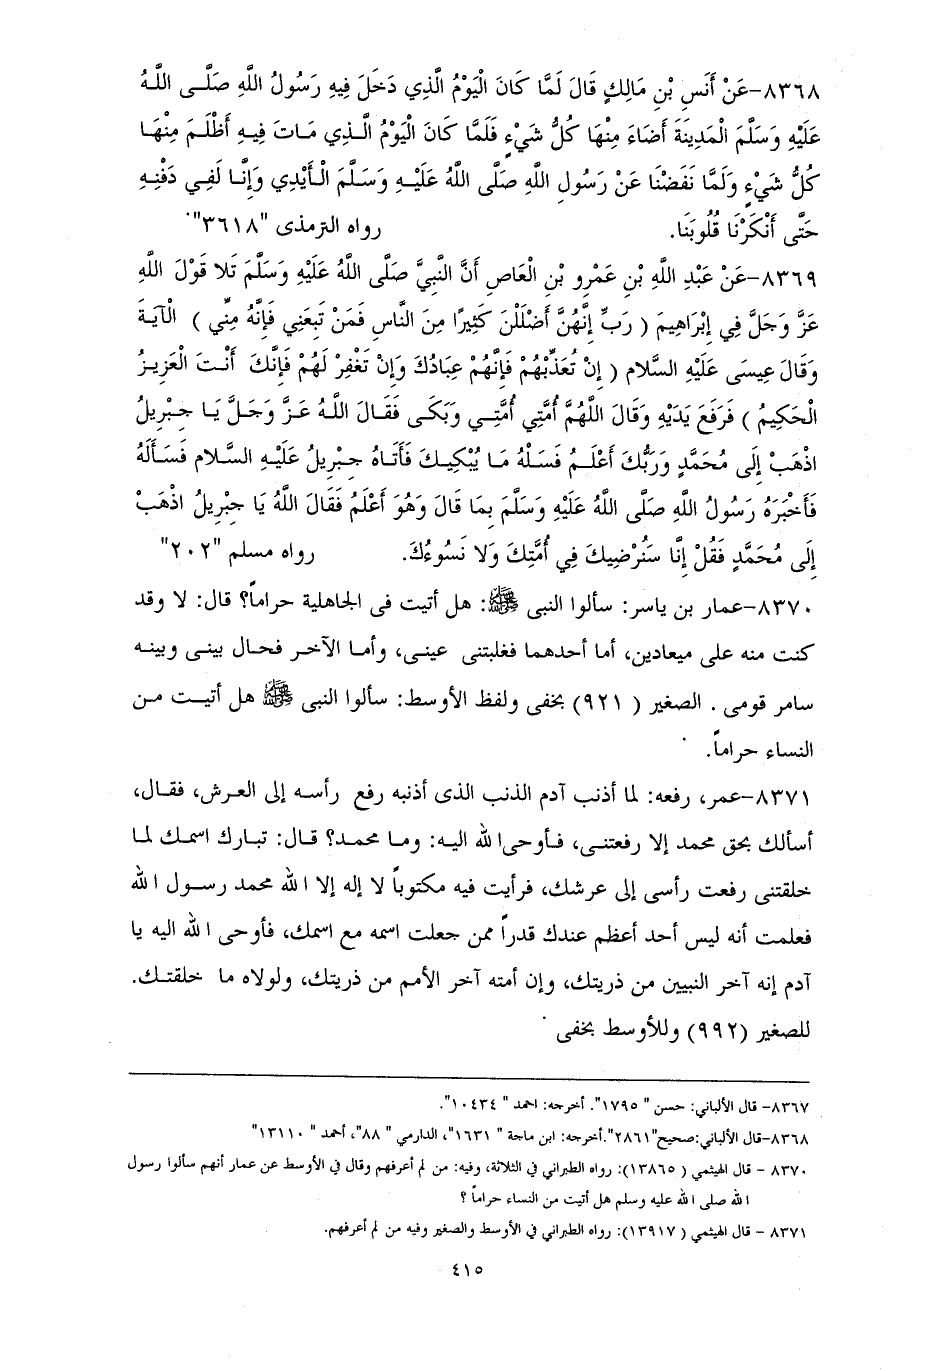 ٨٣٦٨-عَنْ أَنَسِ بْنِ مَالِكٍ قَالَ لَمَّا كَانَ الْيَوْمُ الَّذِي دَخَلَ فِيهِ رَسُولُ اللَّهِ صَلَّى اللَّهُ
عَلَيْهِ وَسَلَّمَ الْمَدِينَةَ أَضَاءَ مِنْهَا كُلُّ شَيْءٍ فَلَمَّا كَانَ الْيَوْمُ الَّذِي مَاتَ فِيهِ أَظْلَمَ مِنْهَا
كُلُّ شَيْءٍ وَلَمَّا نَفَضْنَا عَنْ رَسُولِ اللَّهِ صَلَّى اللَّهُ عَلَيْهِ وَسَلَّمَ الْأَيْدِي وَإِنَّا لَفِي دَفْنِهِ
حَتَّى أَنْكَرْنَا قُلُوبَنَا. رواه الترمذى "٣٦١٨"
٨٣٦٩-عَنْ عَبْدِ اللَّهِ بْنِ عَمْرِو بْنِ الْعَاصِ أَنَّ النَّبِيَّ صَلَّى اللَّهُ عَلَيْهِ وَسَلَّمَ تَلَا قَوْلَ اللَّهِ
عَزَّ وَجَلَّ فِي إِبْرَاهِيمَ ( رَبِّ إِنَّهُنَّ أَضْلَلْنَ كَثِيرًا مِنَ النَّاسِ فَمَنْ تَبِعَنِي فَإِنَّهُ مِنِّي ) الْآيَةَ
وَقَالَ عِيسَى عَلَيْهِ السَّلَام ( إِنْ تُعَذِّبْهُمْ فَإِنَّهُمْ عِبَادُكَ وَإِنْ تَغْفِرْ لَهُمْ فَإِنَّكَ أَنْتَ الْعَزِيزُ
الْحَكِيمُ ) فَرَفَعَ يَدَيْهِ وَقَالَ اللَّهُمَّ أُمَّتِي أُمَّتِي وَبَكَى فَقَالَ اللَّهُ عَزَّ وَجَلَّ يَا جِبْرِيلُ
اذْهَبْ إِلَى مُحَمَّدٍ وَرَبُّكَ أَعْلَمُ فَسَلْهُ مَا يُبْكِيكَ فَأَتَاهُ جِبْرِيلُ عَلَيْهِ السَّلَام فَسَأَلَهُ
فَأَخْبَرَهُ رَسُولُ اللَّهِ صَلَّى اللَّهُ عَلَيْهِ وَسَلَّمَ بِمَا قَالَ وَهُوَ أَعْلَمُ فَقَالَ اللَّهُ يَا جِبْرِيلُ اذْهَبْ
إِلَى مُحَمَّدٍ فَقُلْ إِنَّا سَنُرْضِيكَ فِي أُمَّتِكَ وَلَا نَسُوءُكَ. رواه مسلم "٢٠٢"
٨٣٧٠-عمار بن ياسر: سألوا النبى ﷺ: هل أتيت فى الجاهلية حراماً؟ قال: لا وقد
كنت منه على ميعادين، أما أحدهما فغلبتنى عينى، وأما الآخر فحال بينى وبينه
سامر قومى . الصغير ( ٩٢١) بخفى ولفظ الأوسط: سألوا النبى ﷺ هل أتيت من
النساء حراماً.
٨٣٧١-عمر، رفعه: لما أذنب آدم الذنب الذى أذنبه رفع رأسه إلى العرش، فقال،
أسألك بحق محمد إلا رفعتنى، فأوحى الله اليه: وما محمد؟ قال: تبارك اسمك لما
خلقتنى رفعت رأسى إلى عرشك، فرأيت فيه مكتوباً لا إله إلا الله محمد رسول الله
فعلمت أنه ليس أحد أعظم عندك قدراً ممن جعلت اسمه مع اسمك، فأوحى الله اليه يا
آدم إنه آخر النبيين من ذريتك، وإن أمته آخر الأمم من ذريتك، ولولاه ما خلقتك.
للصغير (٩٩٢) وللأوسط بخفى
٨٣٦٧- قال الألباني: حسن "١٧٩٥". أخرجه: احمد "١٠٤٣٤".
٨٣٦٨-قال الألباني:صحيح"٢٨٦١".أخرجه: ابن ماجة "١٦٣١"، الدارمي "٨٨"، أحمد "١٣١١٠"
٨٣٧٠ - قال الهيثمي ( ١٣٨٦٥): رواه الطبراني في الثلاثة، وفيه: من لم أعرفهم وقال في الأوسط عن عمار أنهم سألوا رسول
الله صلى الله عليه وسلم هل أتيت من النساء حراماً ؟
٨٣٧١ - قال الهيثمي ( ١٣٩١٧): رواه الطبراني في الأوسط والصغير وفيه من لم أعرفهم.
٤١٥